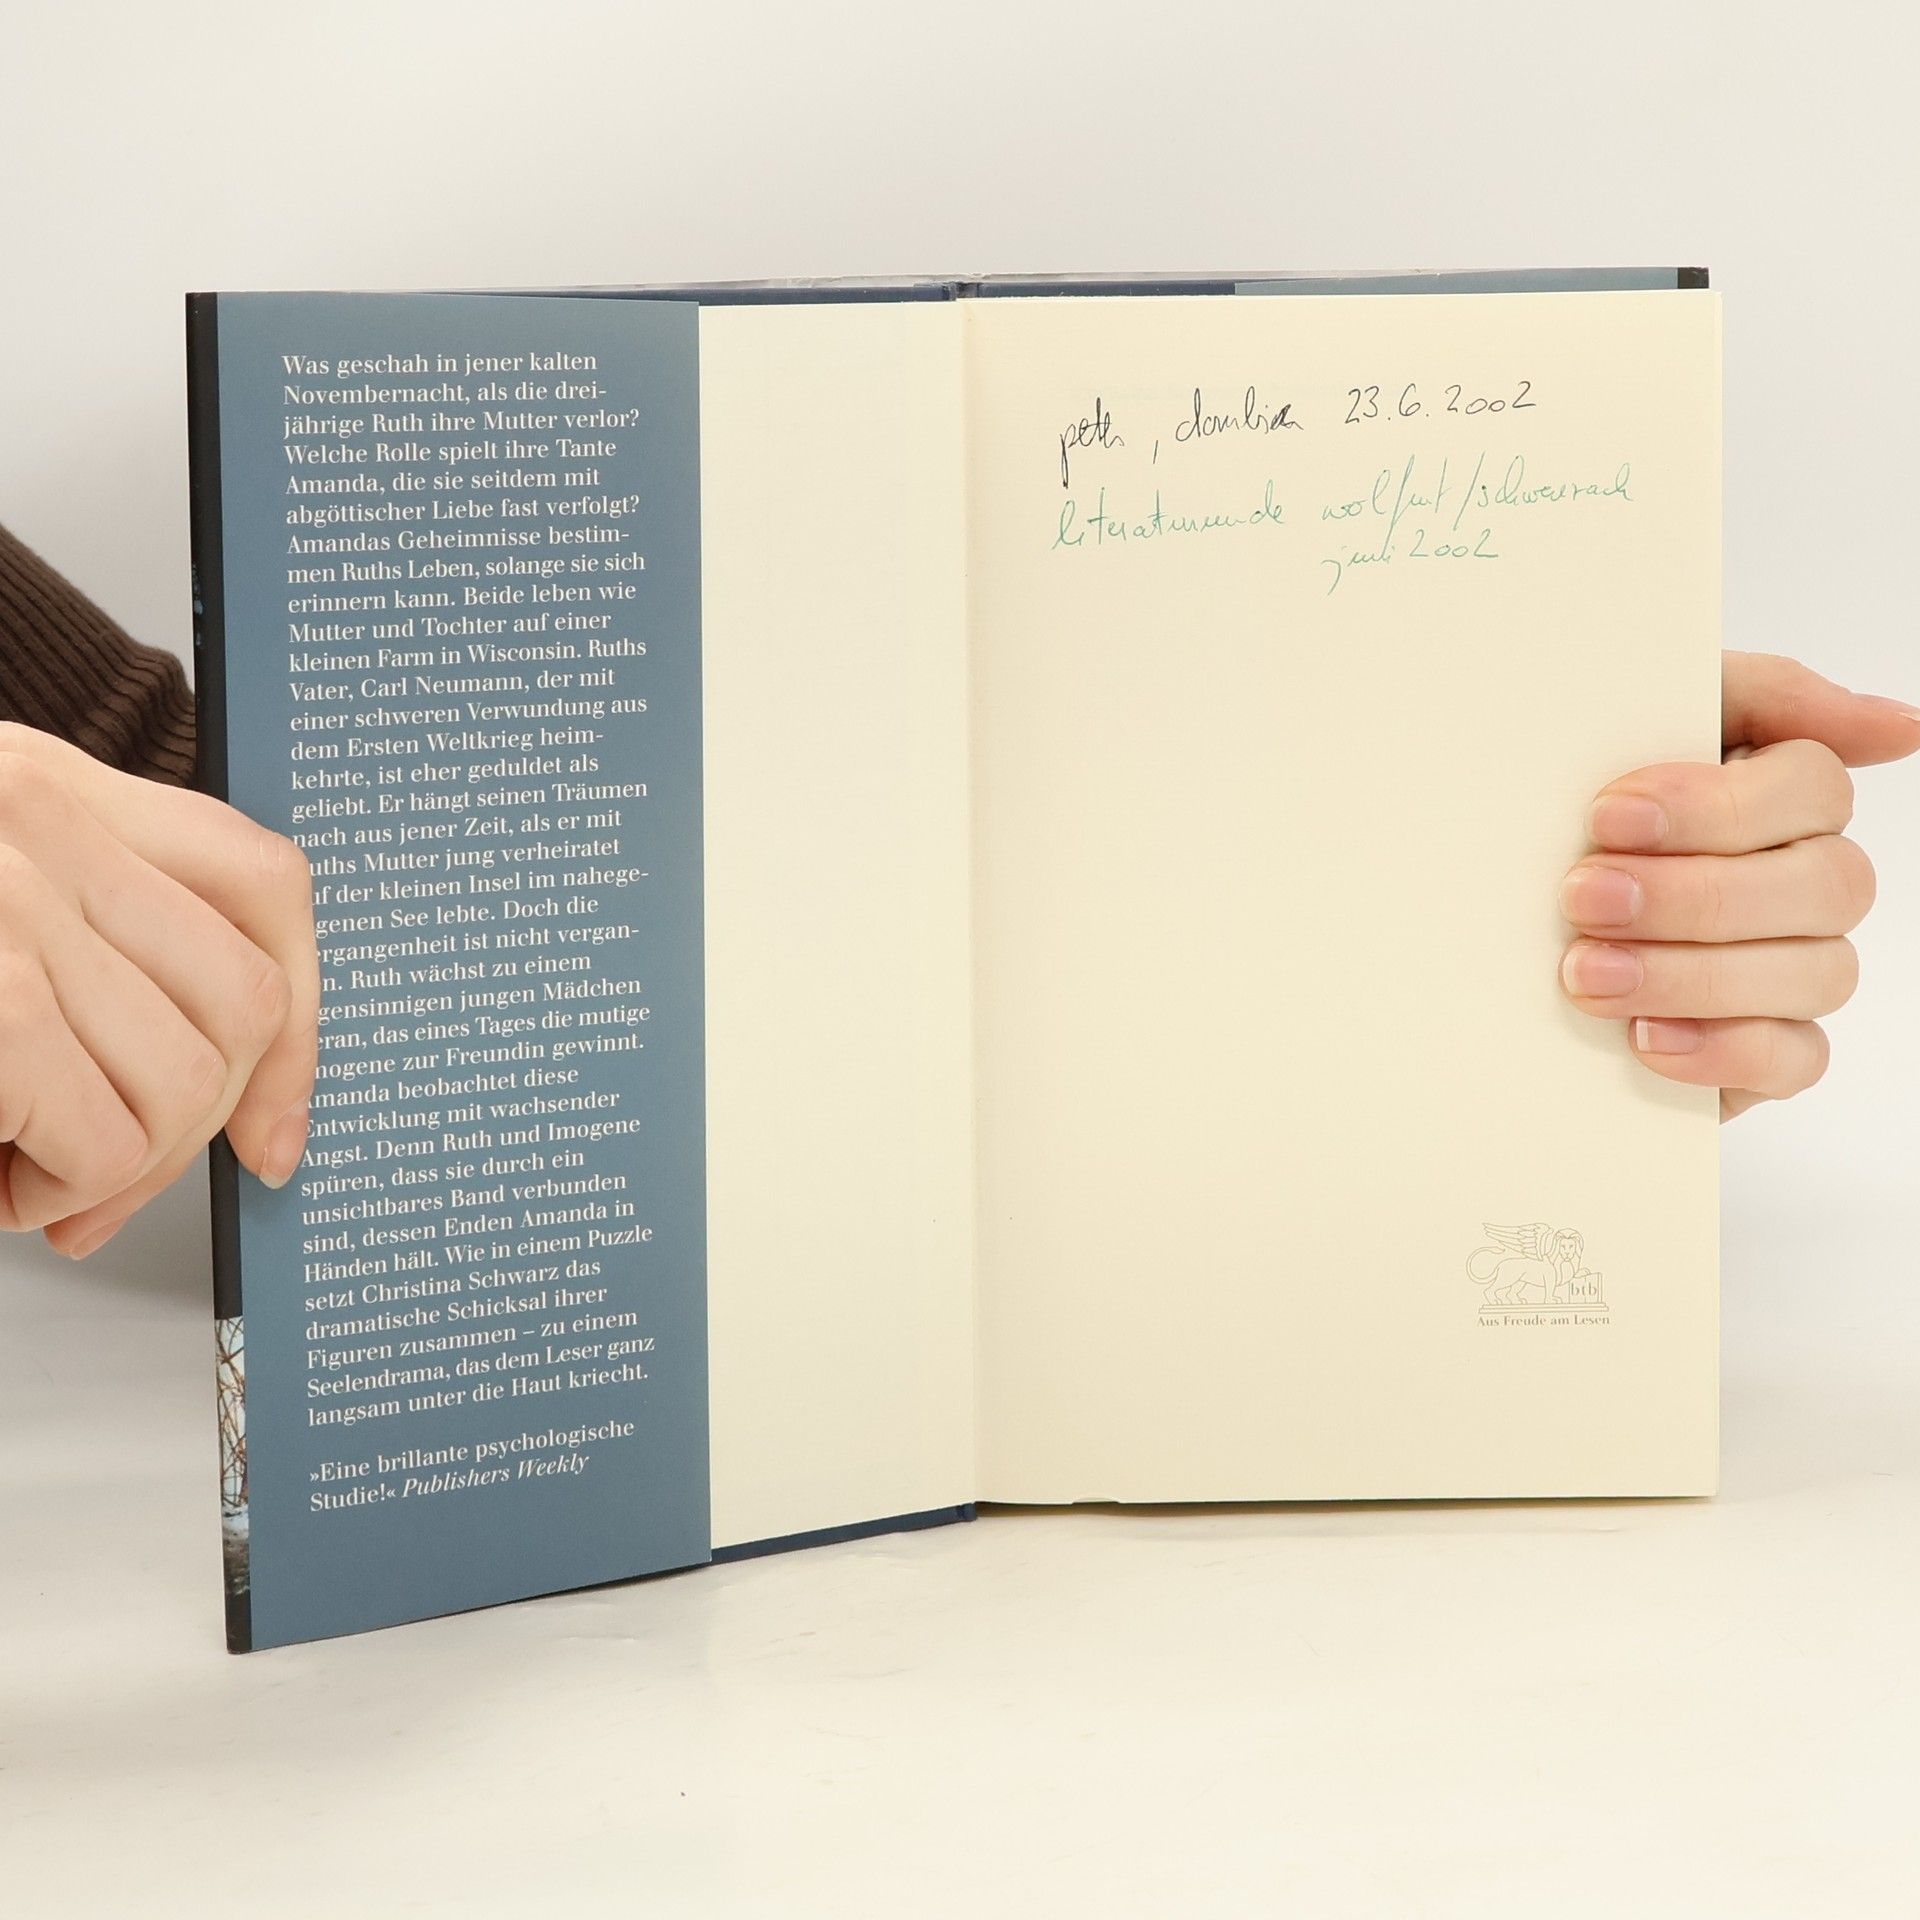 Was geschah in jener kalten
Novembernacht, als die drei-
jährige Ruth ihre Mutter verlor?
Welche Rolle spielt ihre Tante
Amanda, die sie seitdem mit
abgöttischer Liebe fast verfolgt?
Amandas Geheimnisse bestim-
men Ruths Leben, solange sie sich
erinnern kann. Beide leben wie
Mutter und Tochter auf einer
kleinen Farm in Wisconsin. Ruths
Vater, Carl Neumann, der mit
einer schweren Verwundung aus
dem Ersten Weltkrieg heim-
kehrte, ist eher geduldet als
geliebt. Er hängt seinen Träumen
nach aus jener Zeit, als er mit
uths Mutter jung verheiratet
uf der kleinen Insel im nahege-
genen See lebte. Doch die
rgangenheit ist nicht vergan-
n. Ruth wächst zu einem
gensinnigen jungen Mädchen
eran, das eines Tages die mutige
mogene zur Freundin gewinnt.
manda beobachtet diese
Entwicklung mit wachsender
Angst. Denn Ruth und Imogene
spüren, dass sie durch ein
unsichtbares Band verbunden
sind, dessen Enden Amanda in
Händen hält. Wie in einem Puzzle
setzt Christina Schwarz das
dramatische Schicksal ihrer
Figuren zusammen – zu einem
Seelendrama, das dem Leser ganz
langsam unter die Haut kriecht.
»Eine brillante psychologische
Studie!« Publishers Weekly
23.6.2002
literaturrunde wolfurt/schwarzach
juli 2002
btb
Aus Freude am Lesen